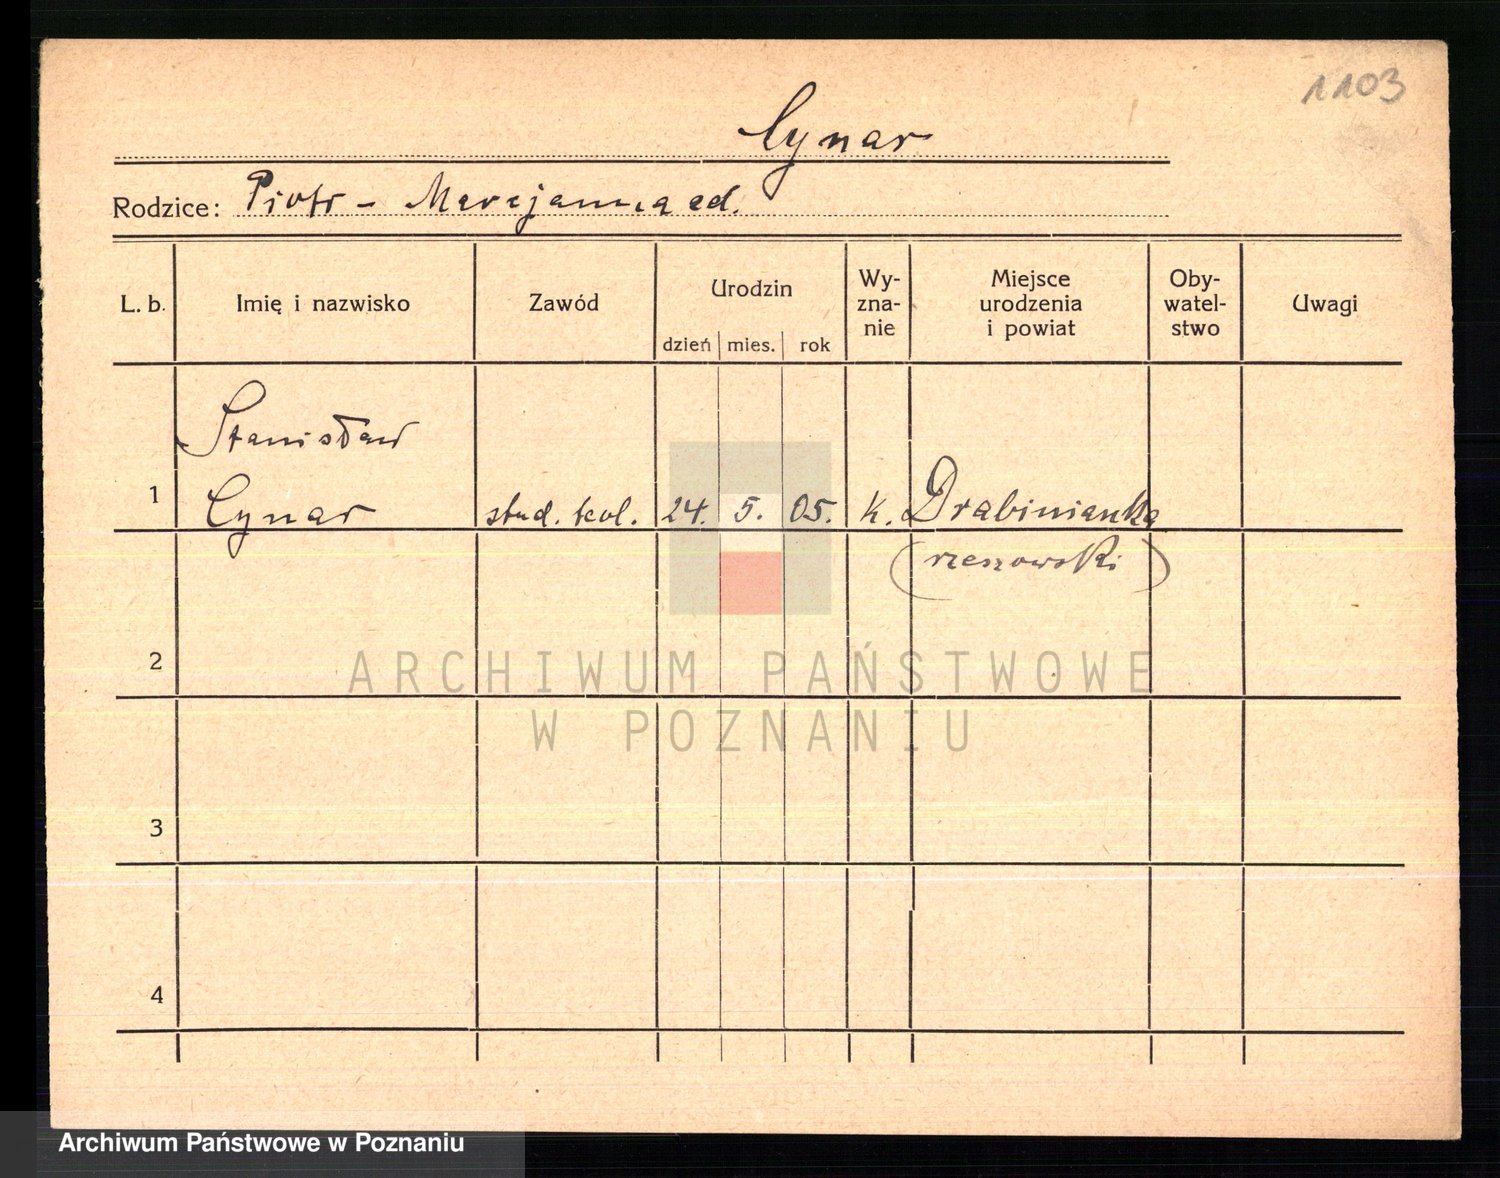 1103
Cynar
Rodzice: Piotr - Maryjanna ad.
L. b. Imię i nazwisko Zawód Urodzin dzień mies. rok Wy-zna-nie Miejsce urodzenia i powiat Oby-watel-stwo Uwagi
Stanisław
1 Cynar stud. 24. 5. 05. k. Drabinianka
(rzeszowski)
2
ARCHIWUM PAŃSTWOWE
W POZNANIU
3
4
Archiwum Państwowe w Poznaniu